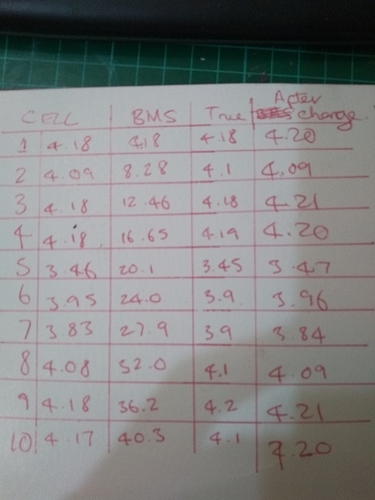 CELL BMS True After charge
1 4.18 4.18 4.18 4.20
2 4.09 8.28 4.1 4.09
3 4.18 12.46 4.18 4.21
4 4.18 16.65 4.19 4.20
5 3.46 20.1 3.45 3.47
6 3.95 24.0 3.9 3.96
7 3.83 27.9 3.9 3.84
8 4.08 32.0 4.1 4.09
9 4.18 36.2 4.2 4.21
10 4.17 40.3 4.1 4.20